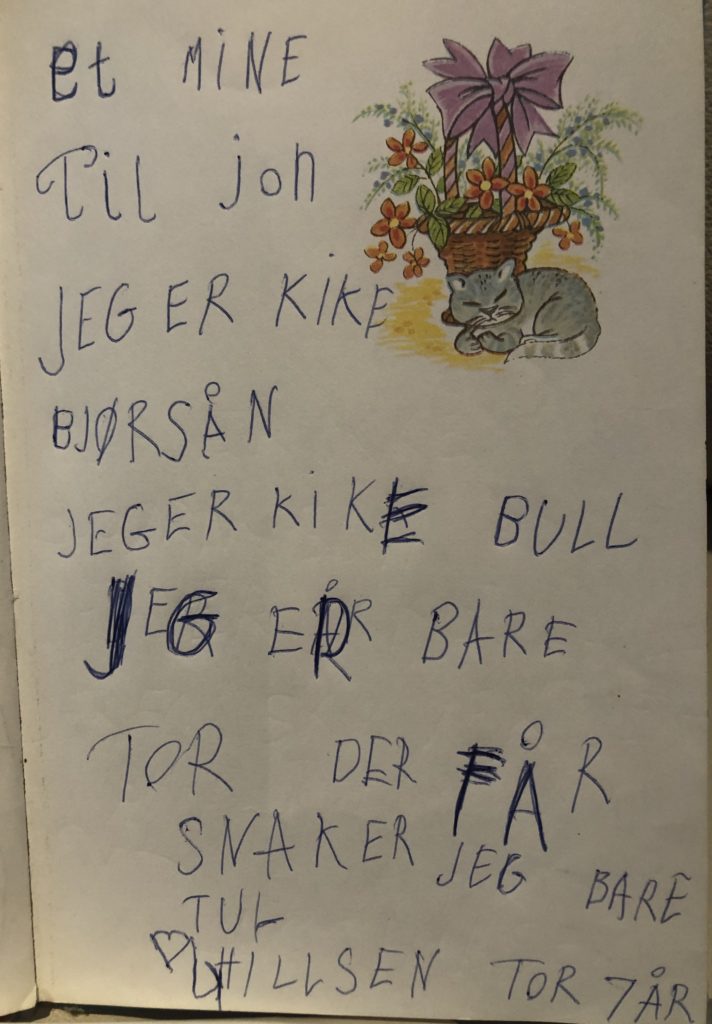 et MINE
Til jon
JEG ER KIKE
BJØRSÅN
JEG ER KIKE BULL
JEG ER BARE
TOR DER FÅR
SNAKER JEG BARE
TUL
HILLSEN TOR 7 ÅR